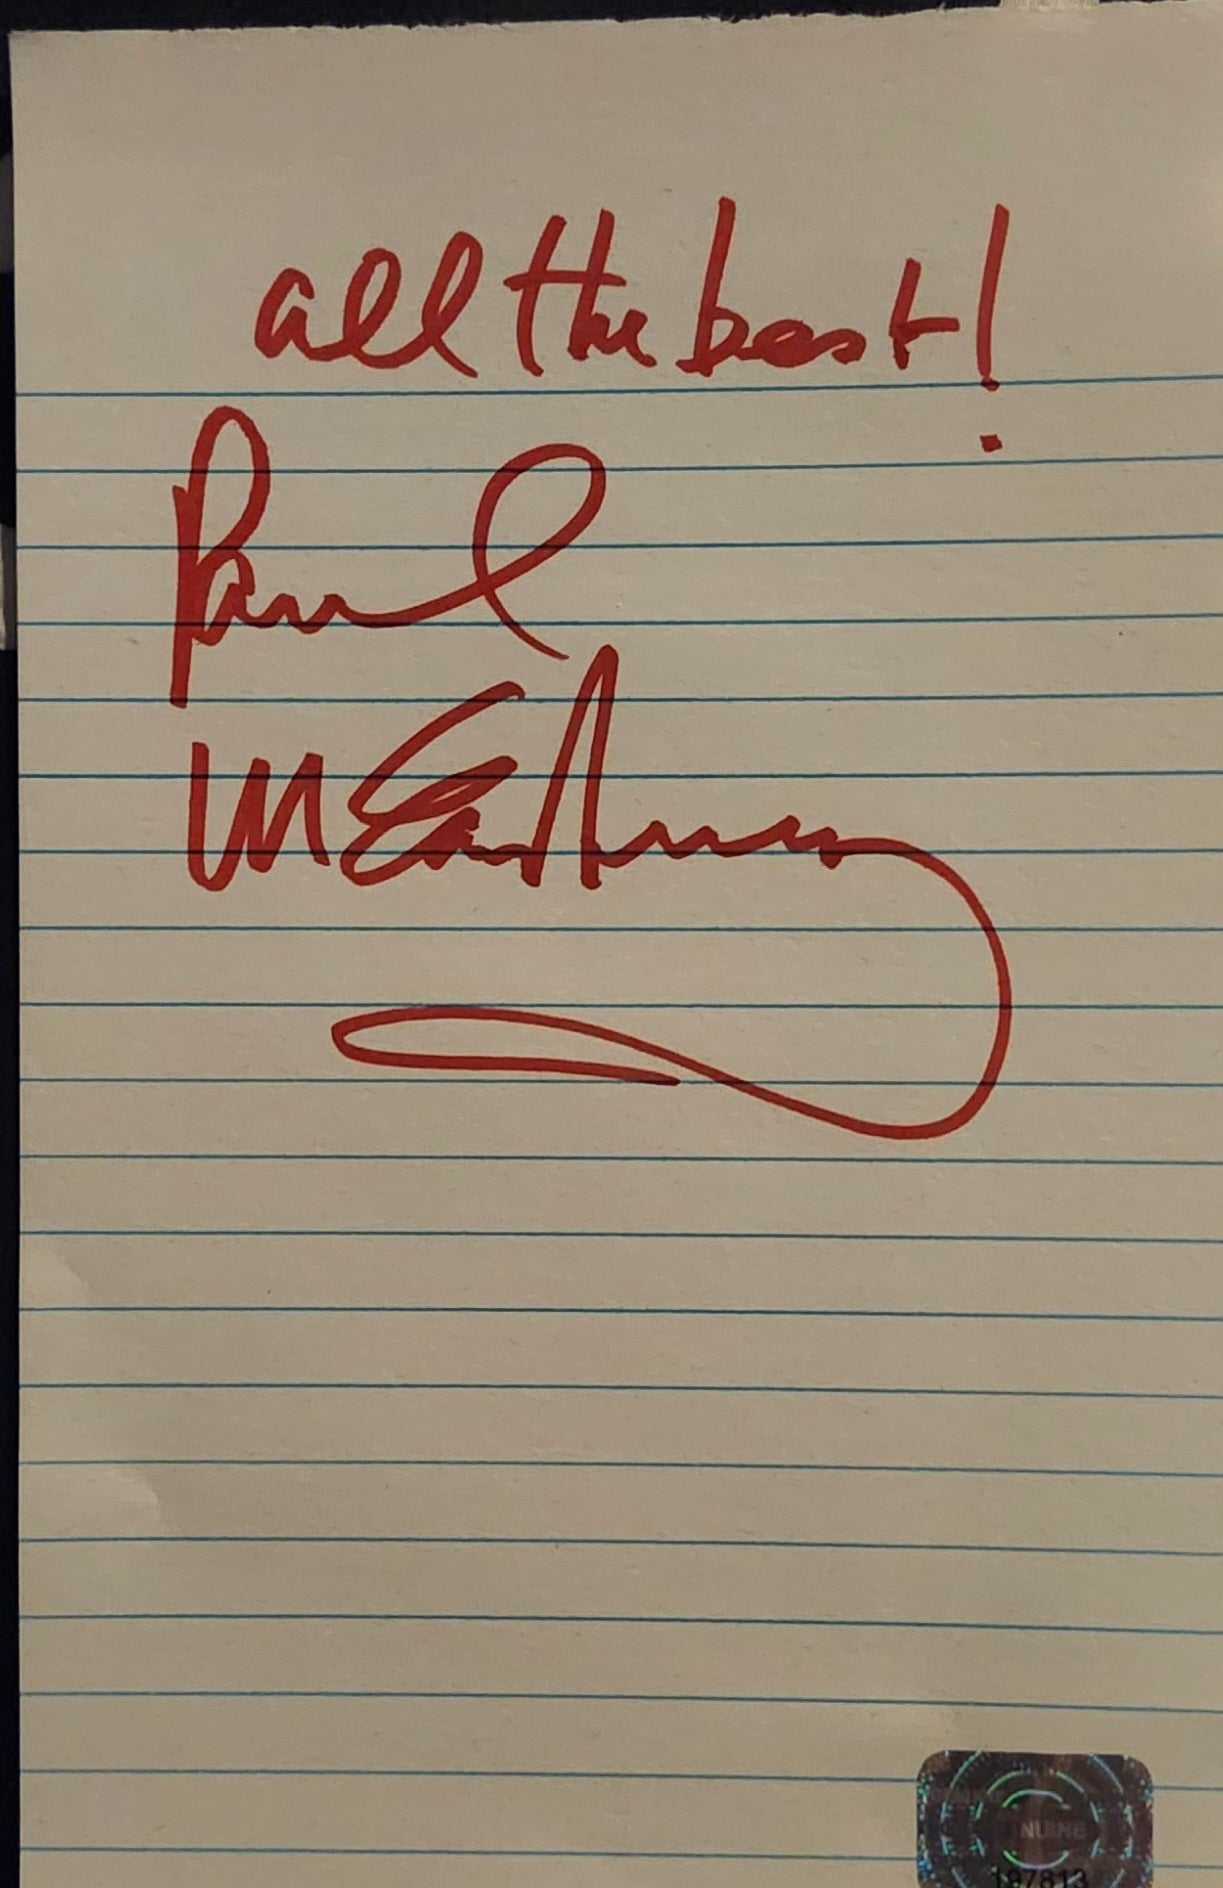 all the best!
Paul
McCartney
NUINE
197813